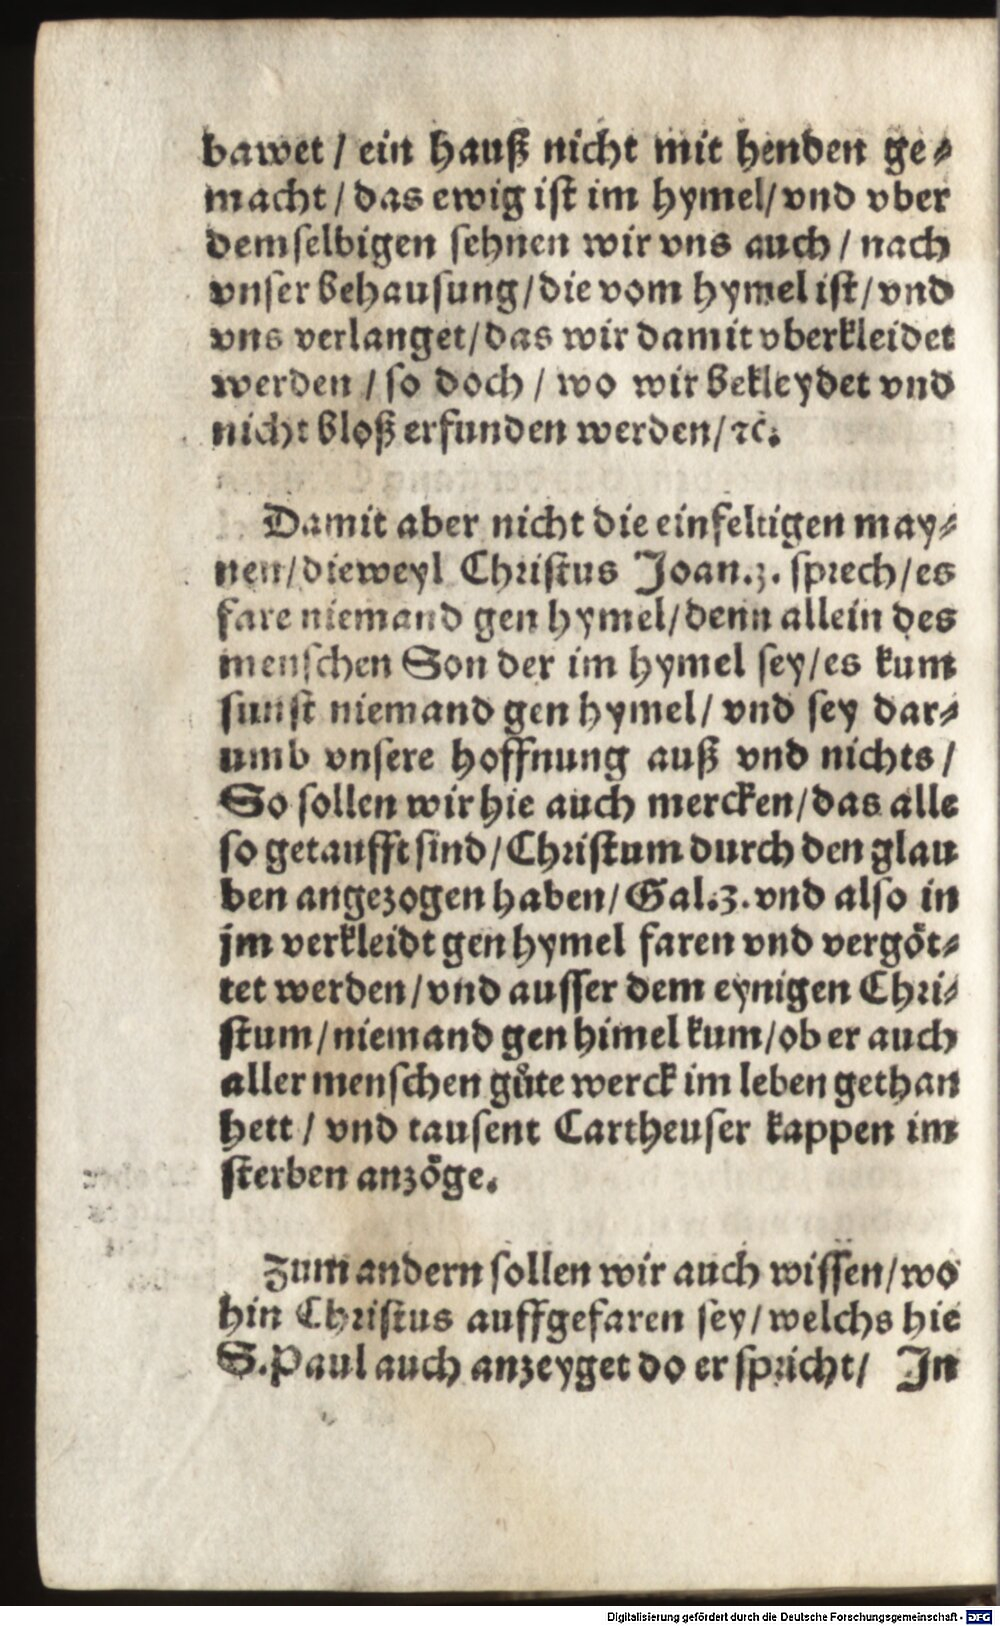 bawet / ein hauß nicht mit henden ge⸗
macht / das ewig ist im hymel / vnd vber
demselbigen sehnen wir vns auch / nach
vnser behausung / die vom hymel ist / vnd
vns verlanget / das wir damit vberkleidet
werden / so doch / wo wir bekleydet vnd
nicht bloß erfunden werden / ⁊c.
Damit aber nicht die einfeltigen may⸗
nen / dieweyl Christus Joan.3. sprech / es
fare niemand gen hymel / denn allein des
menschen Son der im hymel sey / es kum
sunst niemand gen hymel / vnd sey dar⸗
umb vnsere hoffnung auß vnd nichts /
So sollen wir hie auch mercken / das alle
so getaufft sind / Christum durch den glau
ben angezogen haben / Gal.3. vnd also in
jm verkleidt gen hymel faren vnd vergöt⸗
tet werden / vnd ausser dem eynigen Chri⸗
stum / niemand gen himel kum / ob er auch
aller menschen gůte werck im leben gethan
hett / vnd tausent Cartheuser kappen im
sterben anzöge.
Zum andern sollen wir auch wissen / wo
hin Christus auffgefaren sey / welchs hie
S. Paul auch anzeyget do er spricht / In
Digitalisierung gefördert durch die Deutsche Forschungsgemeinschaft - DFG